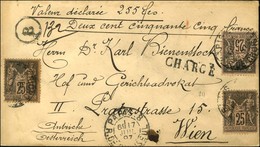 Valeur déclarée 255 frs.
Deux Cent Cinquante Cinq francs
R
Herrn Dr. Karl Bienenstock
CHARGÉ
Hof und Gerichtsadvokat
II Pratesstrasse 15
Wien
Autriche
Oesterreich
25
25
25